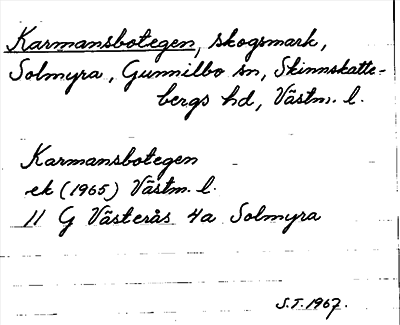 Karmansbotegen, skogsmark,
Solmyra, Gunnilbo sn, Skinnskatte-
bergs hd, Västm. l.
Karmansbotegen
ek (1965) Västm. l.
11 G Västerås 4a Solmyra
S.T. 1967.